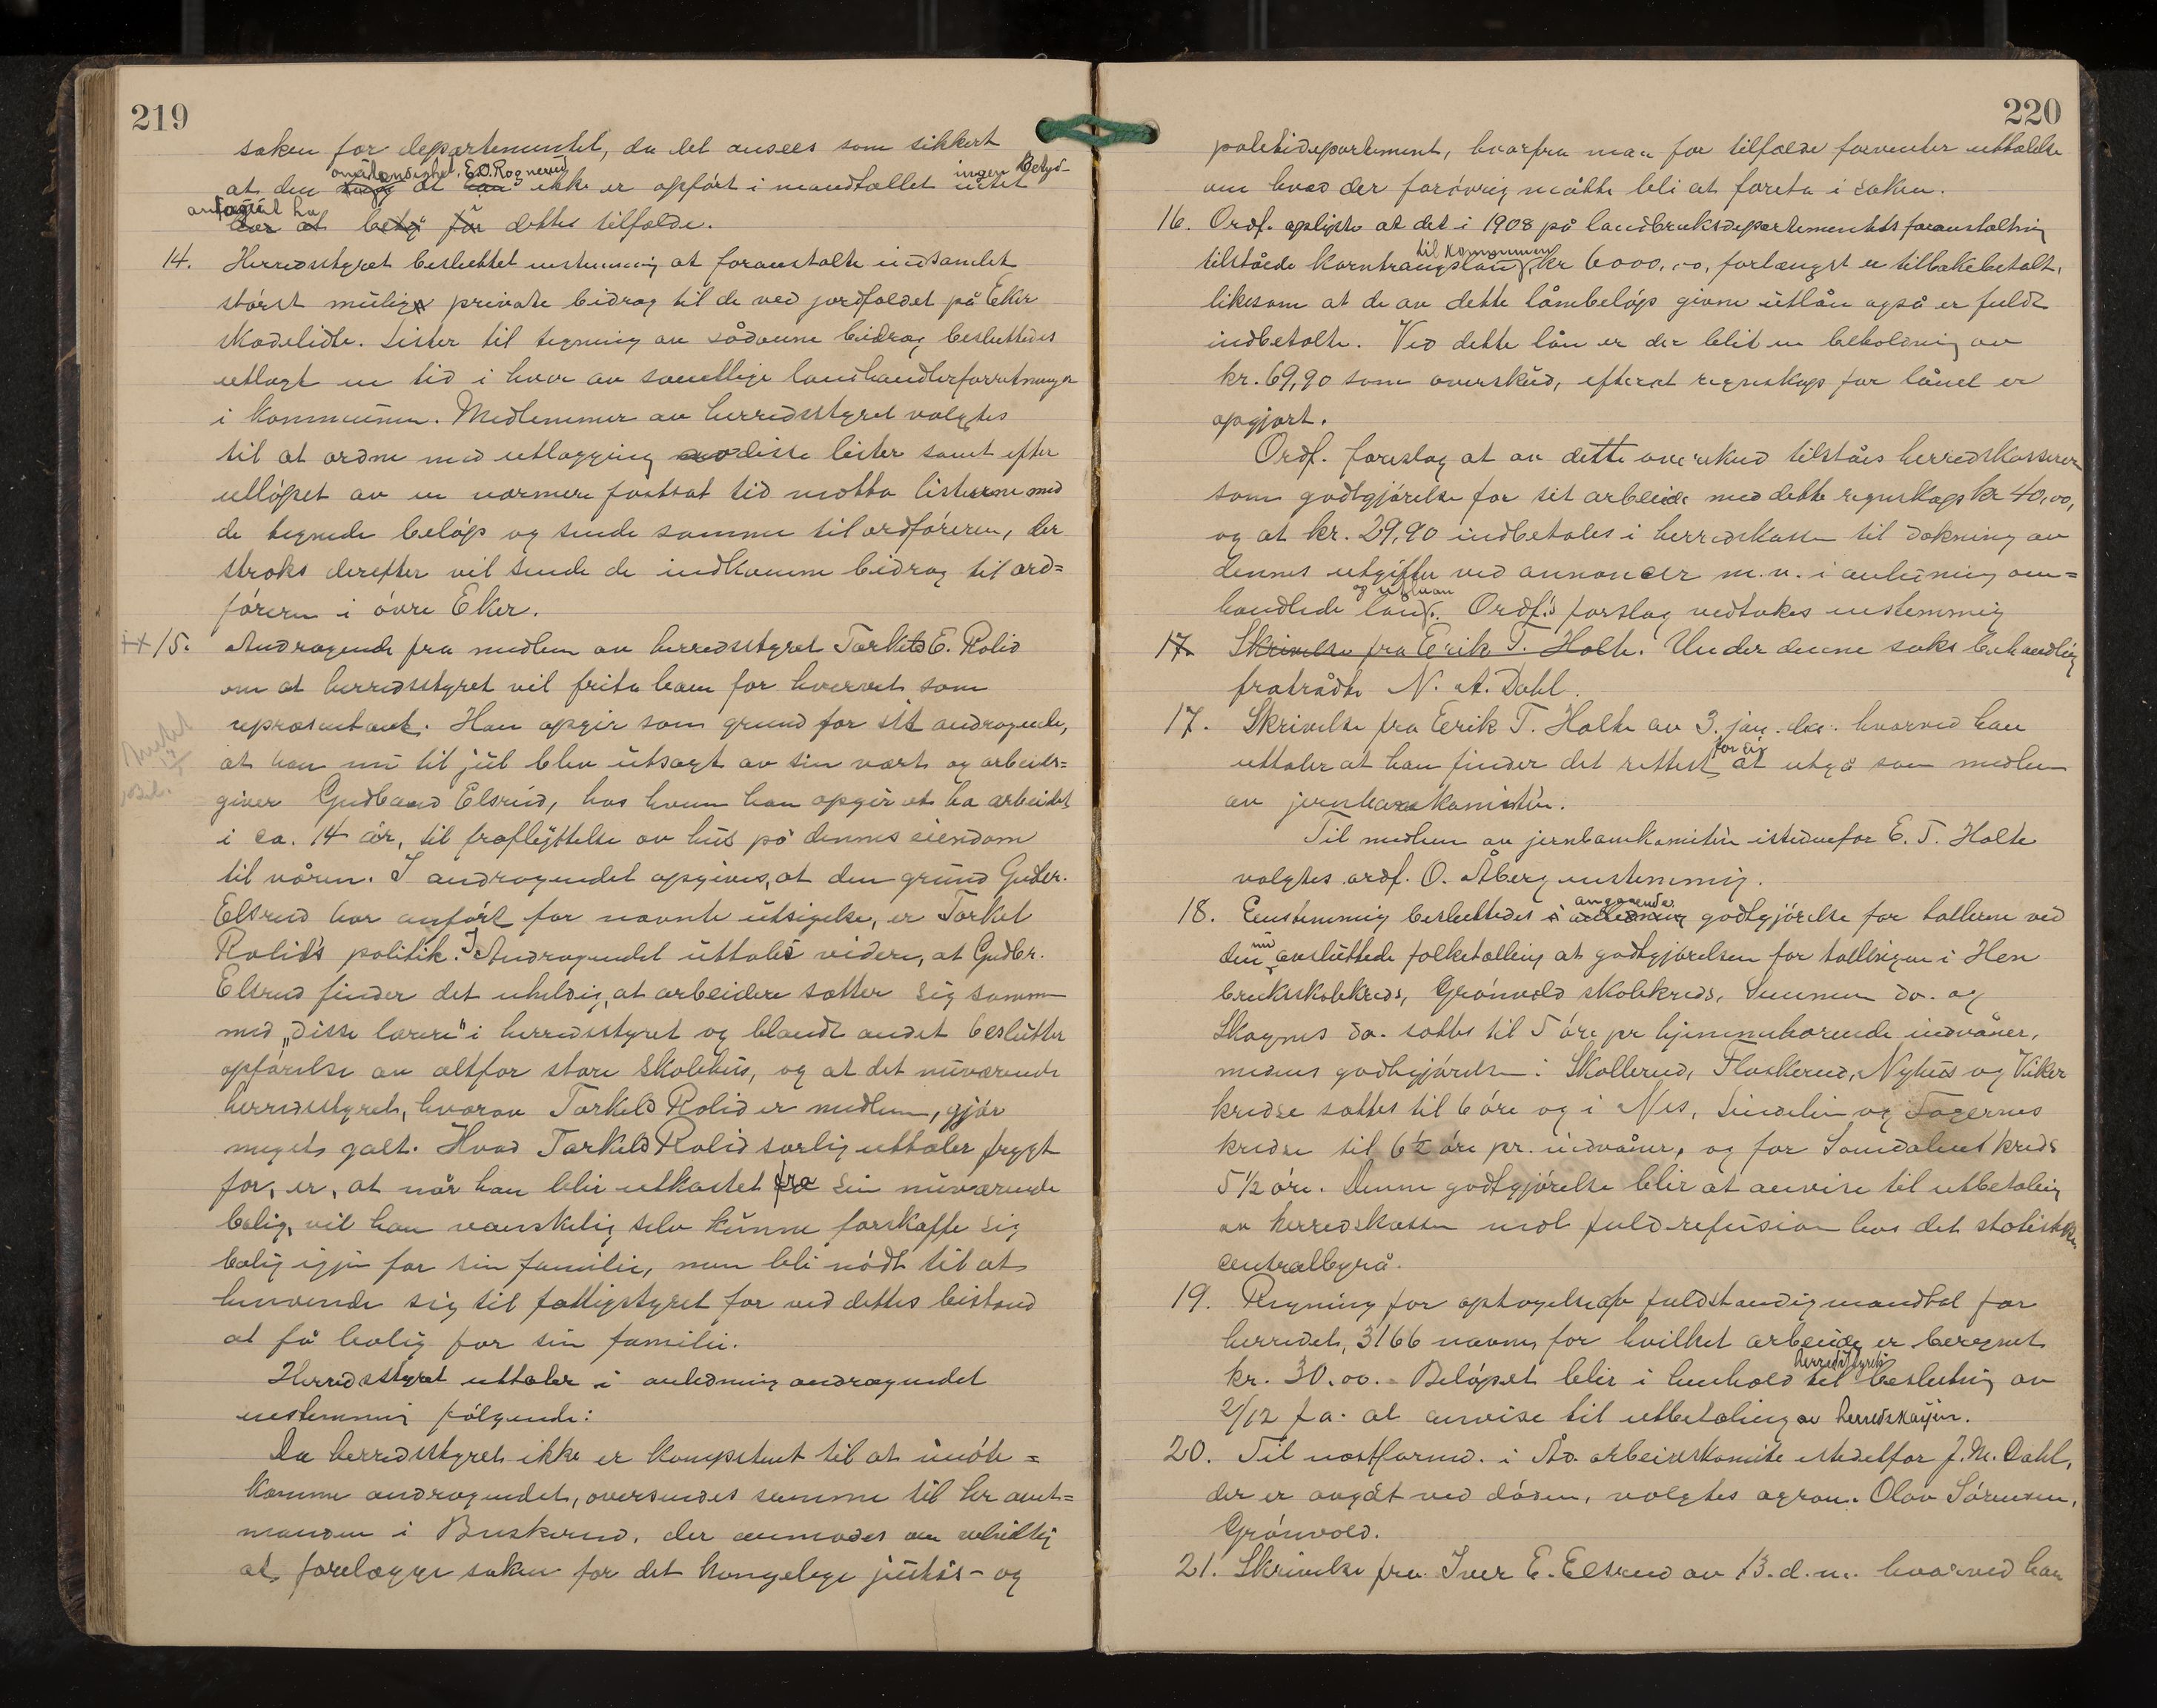 219
saken for departementet, da det ansees som sikkert
omstændighet, E.O. Rognerud ingen Betyd-
at den at han ikke er opført i mandtallet intet
antagelig ha
har at bety for dette tilfælde.
14. Herredsstyret besluttet enstemmig at foranstalte indsamlet
størst mulige private bidrag til de ved jordfaldet på Eker
skadelidte. Lister til tegning av sådanne bidrag besluttedes
utlagt en tid i hver av samtlige landhandlerforretninger
i kommunen. Medlemmer av herredsstyret valgtes
til at ordne med utlægging av disse lister samt efter
utløpet av en nærmere fastsat tid motta listerne med
de tegnede beløp og sende samme til ordføreren, der
straks derefter vil sende de indkomne bidrag til ord=
føreren i øvre Eker.
15. Andragende fra medlem av herredsstyret Torkild E. Rolid
om at herredsstyret vil frita ham for hvervet som
repræsentant. Han opgir som grund for sit andragende,
at han nu til jul blev utsagt av sin vært og arbeids=
giver Gudbrand Elsrud, hos hvem han opgir at ha arbeidet
i ca. 14 år, til fraflyttelse av hus på dennes eiendom
til våren. I andragendet opgives, at den grund Gudbr.
Elsrud har anført for nævnte utsigelse, er Torkel
Rolids politik. I Andragendet uttales videre, at Gudbr.
Elsrud finder det uheldig, at arbeidere sætter sig sammen
med „disse lærere" i herredsstyret og blandt andet beslutter
opførelse av altfor store skolehus, og at det nuværende
herredsstyret, hvorav Torkild Rolid er medlem, gjør
meget galt. Hvad Torkild Rolid særlig uttaler frygt
for, er, at når han blir utkastet fra sin nuværende
bolig, vil han vanskelig selv kunne forskaffe sig
bolig igjen for sin familie, men bli nødt til at
henvende sig til fattigstyret for ved dettes bistand
at få bolig for sin familie.
Herredsstyret uttaler i anledning andragendet
enstemmig følgende:
Da herredsstyret ikke er kompetent til at imøte=
komme andragendet, oversendes samme til hr amt=
manden i Buskerud, der anmodes om velvillig
at forelægge saken for det kongelige justis- og
220
politidepartement, hvorfra man for tilfælde forventer uttalelse
om hvad der forøvrig måtte bli at foreta i saken.
16. Ordf. oplyste at det i 1908 på landbruksdepartementets foranstaltning
til kommunen
tilståede korntrangslån kr 6000,00, forlængst er tilbakebetalt,
likesom at de av dette lånebeløp givne utlån også er fuldt
indbetalte. Ved dette lån er der blit en beholdning av
kr. 69,90 som overskud, efterat regnskap for lånet er
opgjort.
Ordf. foreslog at av dette overskud tilståes herredskasserer
som godtgjørelse for sit arbeide med dette regnskap kr 40,00,
og at kr. 29,90 indbetales i herredskassen til dækning av
dennes utgifter ved annoncer m.v. i anledning om=
og utlaan
handlede lån. Ordf.s forslag vedtokes enstemmig
17. Skrivelse fra Erik T. Holte. Under denne saks behandling
fratrådte N. A. Dahl.
17. Skrivelse fra Eerik T. Holte av 3. jan. d.å. hvorved han
for sig
uttaler at han finder det rettest at utgå som medlem
av jernbanekomitén.
Til medlem av jernbanekomitén istedenfor E. T. Holte
valgtes ordf. O. Åberg enstemmig.
angaaende
18. Eenstemmig besluttedes i anledning godtgjørelse for tællerne ved
nu
den avsluttede folketælling at godtgjørelsen for tællingen i Hen
bruksskolekreds, Grønvold skolekreds, Semmen do. og
Skagnes do. sættes til 5 øre pr hjemmehørende indvåner,
medens godtgjørelsen i Skollerud, Flaskerud, Nyhus og Viker
kredse sættes til 6 øre og i Nes, Sindelin og Fagernes
kredse til 6½ øre pr. indvåner, og for Somdalens kreds
5½ øre. Denne godtgjørelse blir at anvise til utbetaling
av herredskassen mot fuld refusion hos det statistiske
centralbyrå.
19. Regning for optagelse av fuldstændig mandtal for
herredet, 3166 navne, for hvilket arbeide er beregnet
herredsstyrets
kr. 30.00. Beløpet blir i henhold til beslutning av
2/12 f.a. at anvise til utbetaling av herredskassen.
20. Til næstformd. i Åd. arbeiderskomite istedetfor J. M. Dahl,
der er avgåt ved døden, valgtes agron. Olav Sørensen,
Grønvold.
21. Skrivelse fra Iver E. Elsrud av 13. d.m. hvorved han